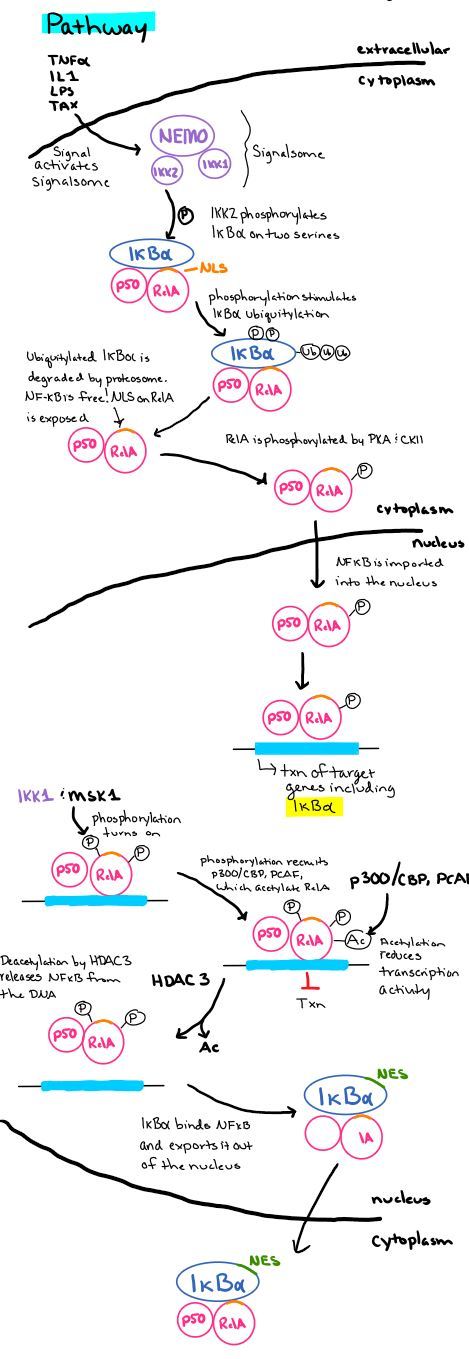 Pathway
extracellular
cytoplasm
TNFα
IL1
LPS
TAX
Signal
activates
Signalsome
NEMO
IKK2
IKK1
Signalsome
P
IKK2 phosphorylates
IκBα on two serines
IκBα
NLS
p50
RelA
phosphorylation stimulates
IκBα ubiquitylation
P P
IκBα
Ub Ub Ub
p50
RelA
Ubiquitylated IκBα is
degraded by proteosome.
NF-κB is free! NLS on RelA
is exposed
p50
RelA
RelA is phosphorylated by PKA & CKII
P
p50
RelA
cytoplasm
nucleus
NFκB is imported
into the nucleus
P
p50
RelA
P
p50
RelA
txn of target
genes including
IκBα
IKK1 & MSK1
phosphorylation
turns on
P
P
p50
RelA
phosphorylation recruits
p300/CBP, PCAF,
which acetylate RelA
p300/CBP, PCAF
P
P
p50
RelA
Ac
Acetylation
reduces
transcription
activity
Txn
Deacetylation by HDAC3
releases NFκB from
the DNA
HDAC3
Ac
P
P
p50
RelA
IκBα binds NFκB
and exports it out
of the nucleus
NES
IκBα
lA
nucleus
cytoplasm
NES
IκBα
p50
RelA